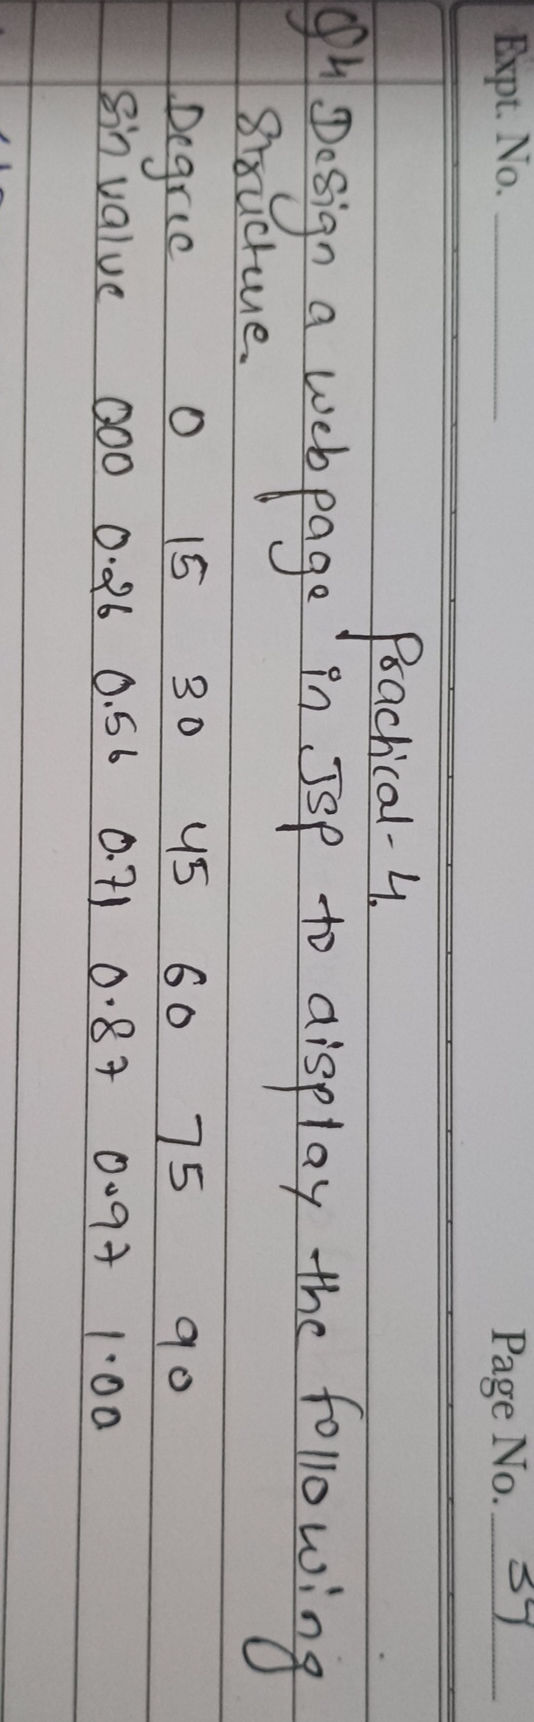 Expt. No. Page No. 34
Practical-4.
Q4 Design a webpage in JSP to display the following
Structure.
Degree 0 15 30 45 60 75 90
Sin value 000 0.26 0.56 0.71 0.87 0.97 1.00